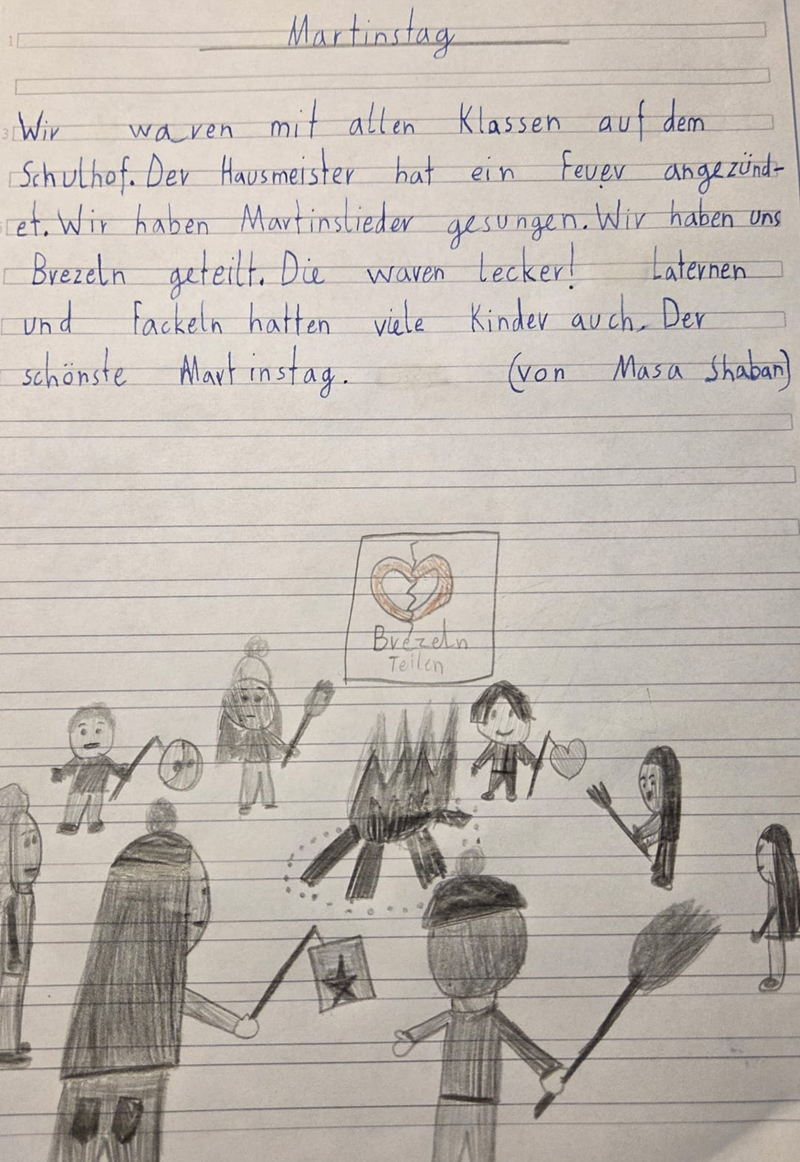 Martinstag
Wir waren mit allen Klassen auf dem
Schulhof. Der Hausmeister hat ein Feuer angezünd-
et. Wir haben Martinslieder gesungen. Wir haben uns
Brezeln geteilt. Die waren lecker! Laternen
und Fackeln hatten viele Kinder auch. Der
schönste Martinstag. (von Masa Shaban)
Brezeln
Teilen